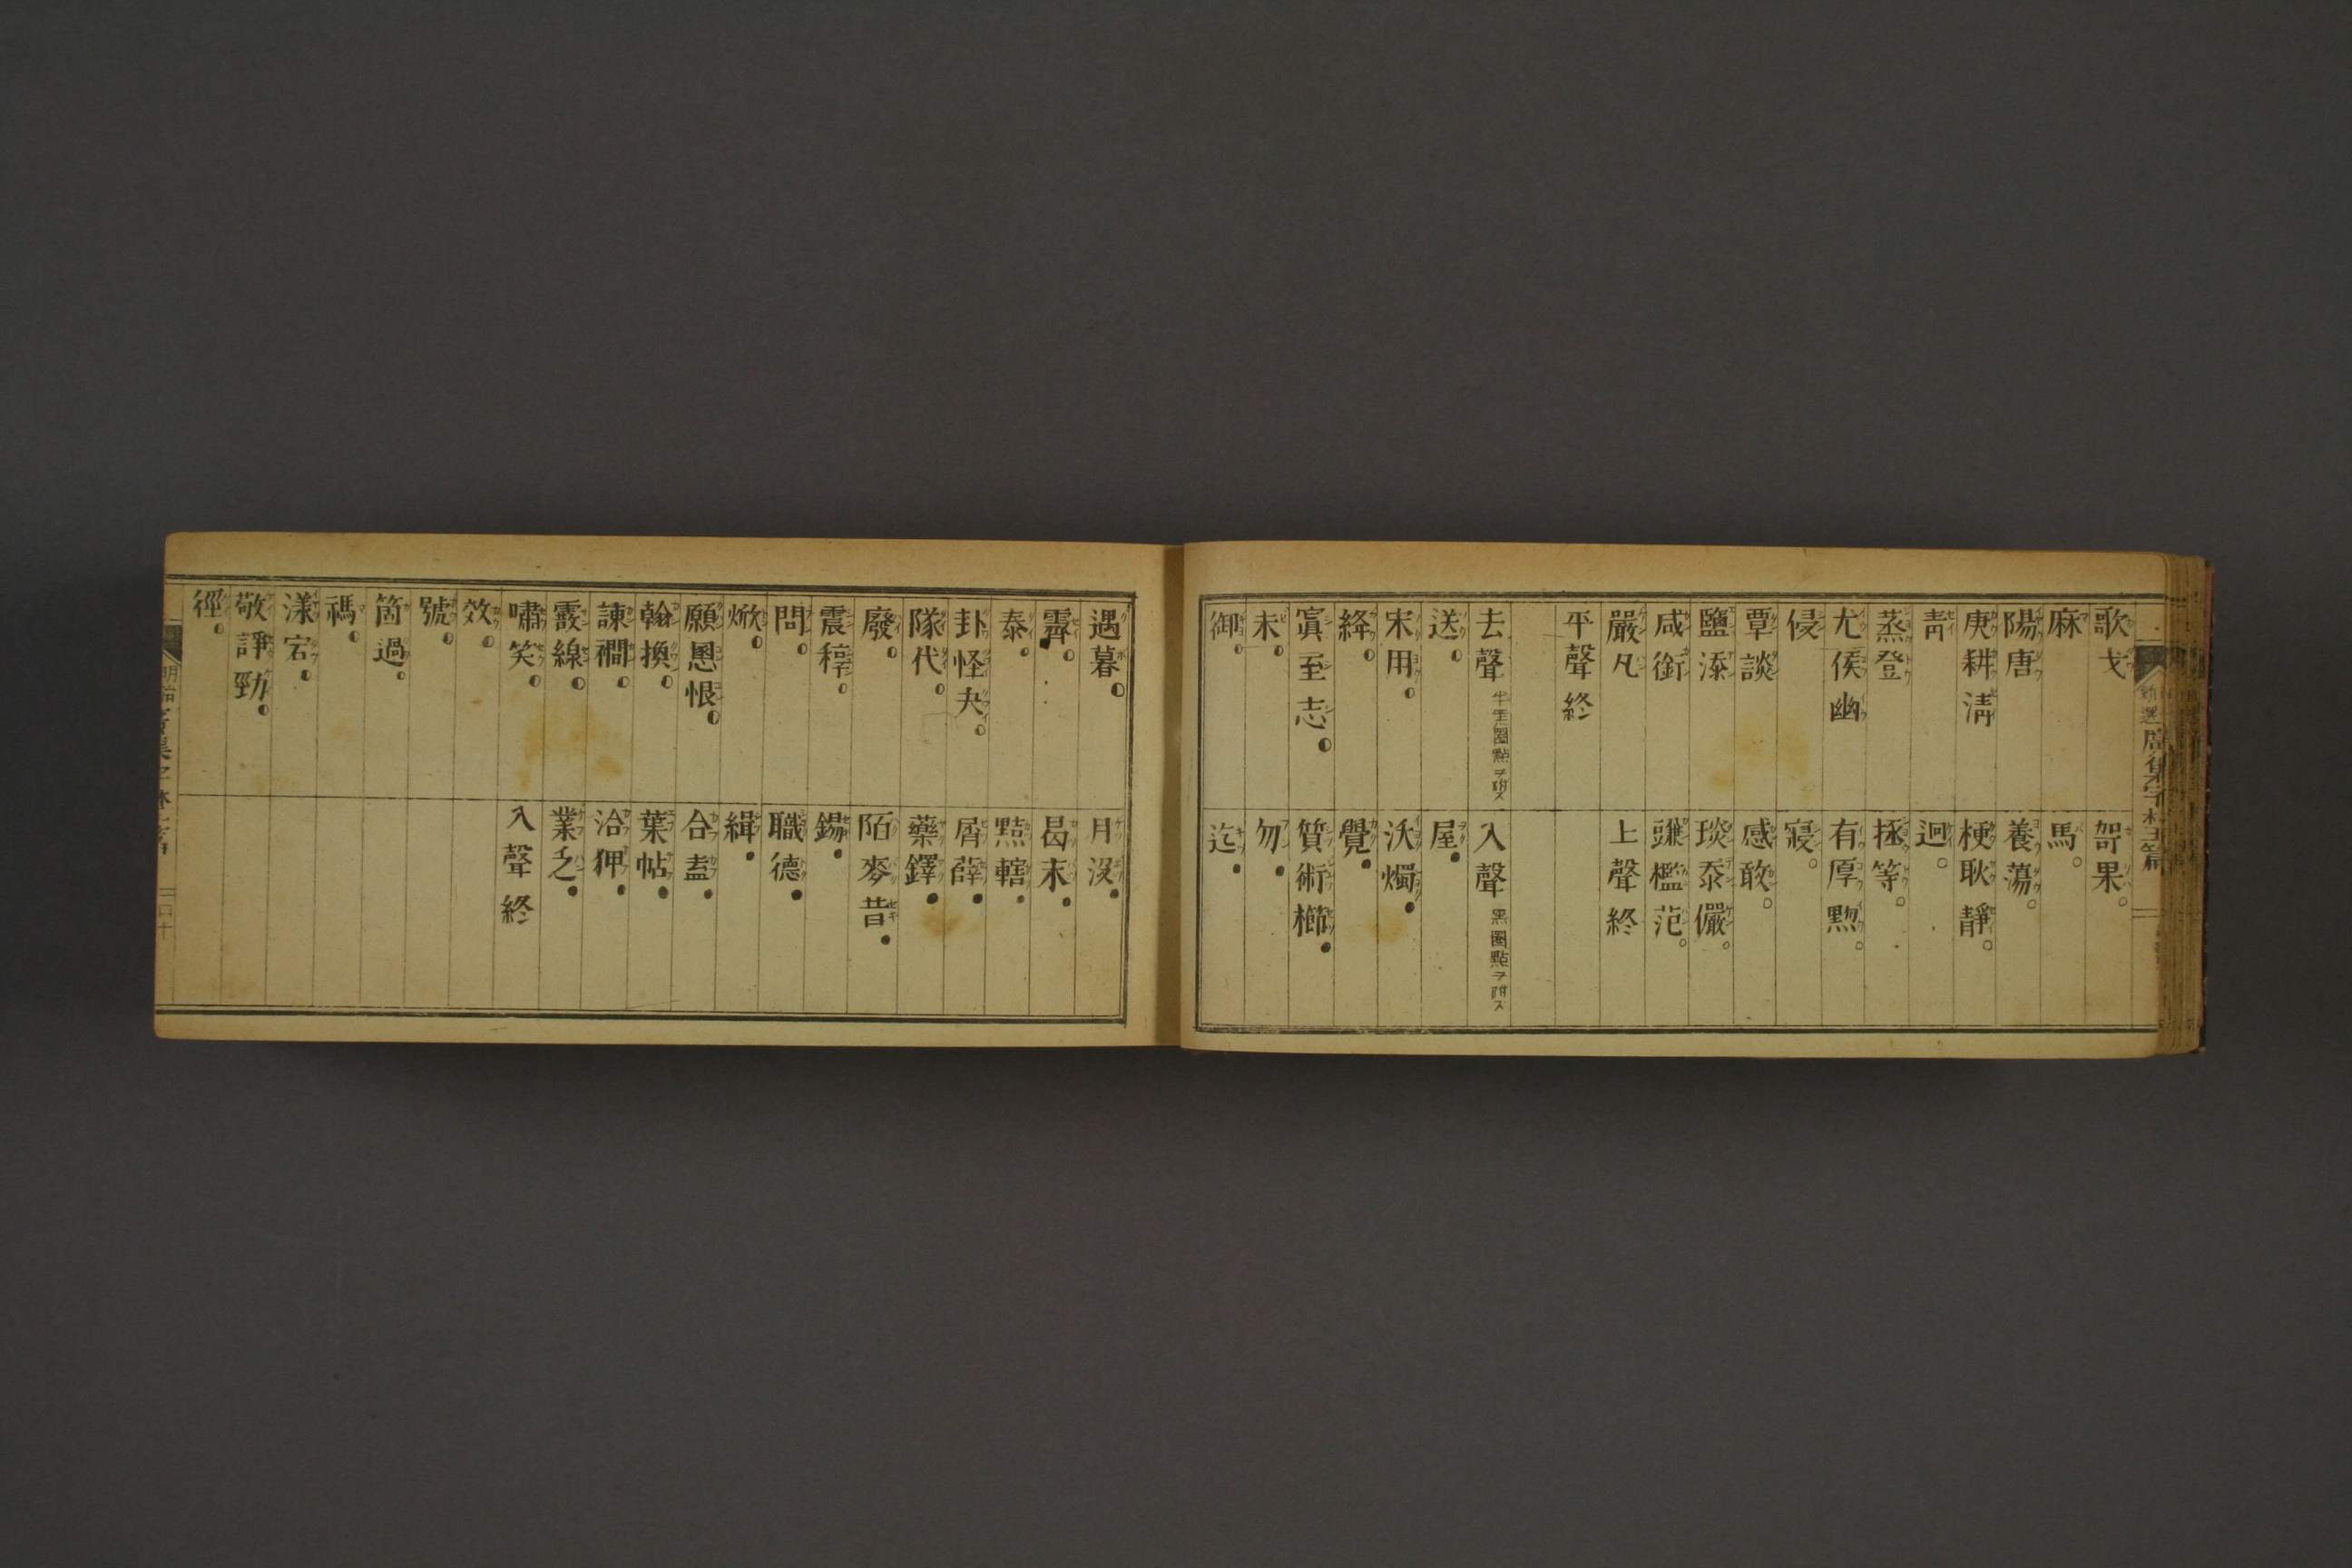 歌戈
麻
陽唐
庚耕清
靑
蒸登
尤侯幽
侵
覃談
鹽添
咸銜
嚴凡
平聲終
去聲 半黑圈點ヲ附ス
送◐
宋用◐
絳◐
寘至志◐
未◐
御◐
哿果○
馬○
養蕩○
梗耿靜○
迥○
拯等○
有厚黝○
寢○
感敢○
琰忝儼○
豏檻范○
上聲終
入聲 黑圈點ヲ附ス
屋●
沃燭●
覺●
質術櫛●
勿●
迄●
遇暮◐
霽◐
泰◐
卦怪夬◐
隊代◐
廢◐
震稕◐
問◐
焮◐
願慁恨◐
翰換◐
諫襇◐
霰線◐
嘯笑◐
效◐
號◐
箇過◐
禡◐
漾宕◐
敬諍勁◐
徑◐
月沒●
曷末●
黠轄●
屑薛●
藥鐸●
陌麥昔●
錫●
職德●
緝●
合盍●
葉帖●
洽狎●
業乏●
入聲終